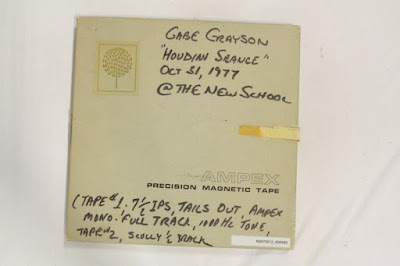 GABE GRAYSON
"HOUDINI SEANCE"
OCT 31, 1977
@ THE NEW SCHOOL
AMPEX
PRECISION MAGNETIC TAPE
(TAPE #1. 7½ IPS, TAILS OUT, AMPEX
MONO. FULL TRACK, 1000 Hz TONE,
TAPE #2, SCULLY ½ TRACK